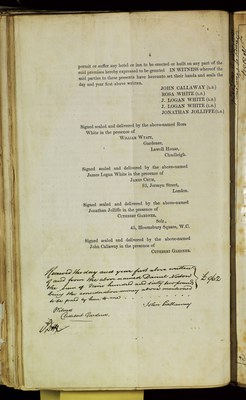 4
permit or suffer any hotel or inn to be erected or built on any part of the
said premises hereby expressed to be granted IN WITNESS whereof the
said parties to these presents have hereunto set their hands and seals the
day and year first above written.
JOHN CALLAWAY (L.S.)
ROSA WHITE (L.S.)
J. LOGAN WHITE (L.S.)
J. LOGAN WHITE (L.S.)
JONATHAN JOLLIFFE (L.S.)
Signed sealed and delivered by the above-named Rosa
White in the presence of
WILLIAM WYATT,
Gardener,
Lowell House,
Chudleigh.
Signed sealed and delivered by the above-named
James Logan White in the presence of
JAMES
53, Jermyn Street,
London.
Signed sealed and delivered by the above-named
Jonathan Jolliffe in the presence of
CUTHBERT GARDNER,
Solr.,
46, Bloomsbury Square, W.C.
Signed sealed and delivered by the above-named
John Callaway in the presence of
CUTHBERT GARDNER.
Received the day and year first above written
of and from the above named Daniel
the sum of Nine hundred and sixty two pounds
being the consideration money above mentioned
to be paid by him to me
£962
John Callaway
Witness
Cuthbert Gardner